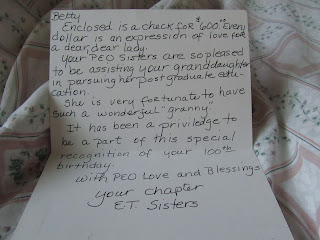 Betty
Enclosed is a check for $600.00 Every
dollar is an expression of love for
a dear, dear lady.
Your PEO Sisters are so pleased
to be assisting your granddaughter
in pursuing her postgraduate edu-
cation.
She is very fortunate to have
such a wonderful "granny"
It has been a priviledge to
be a part of this special
recognition of your 100th
birthday.
With PEO Love and Blessings
Your Chapter
E.T. Sisters